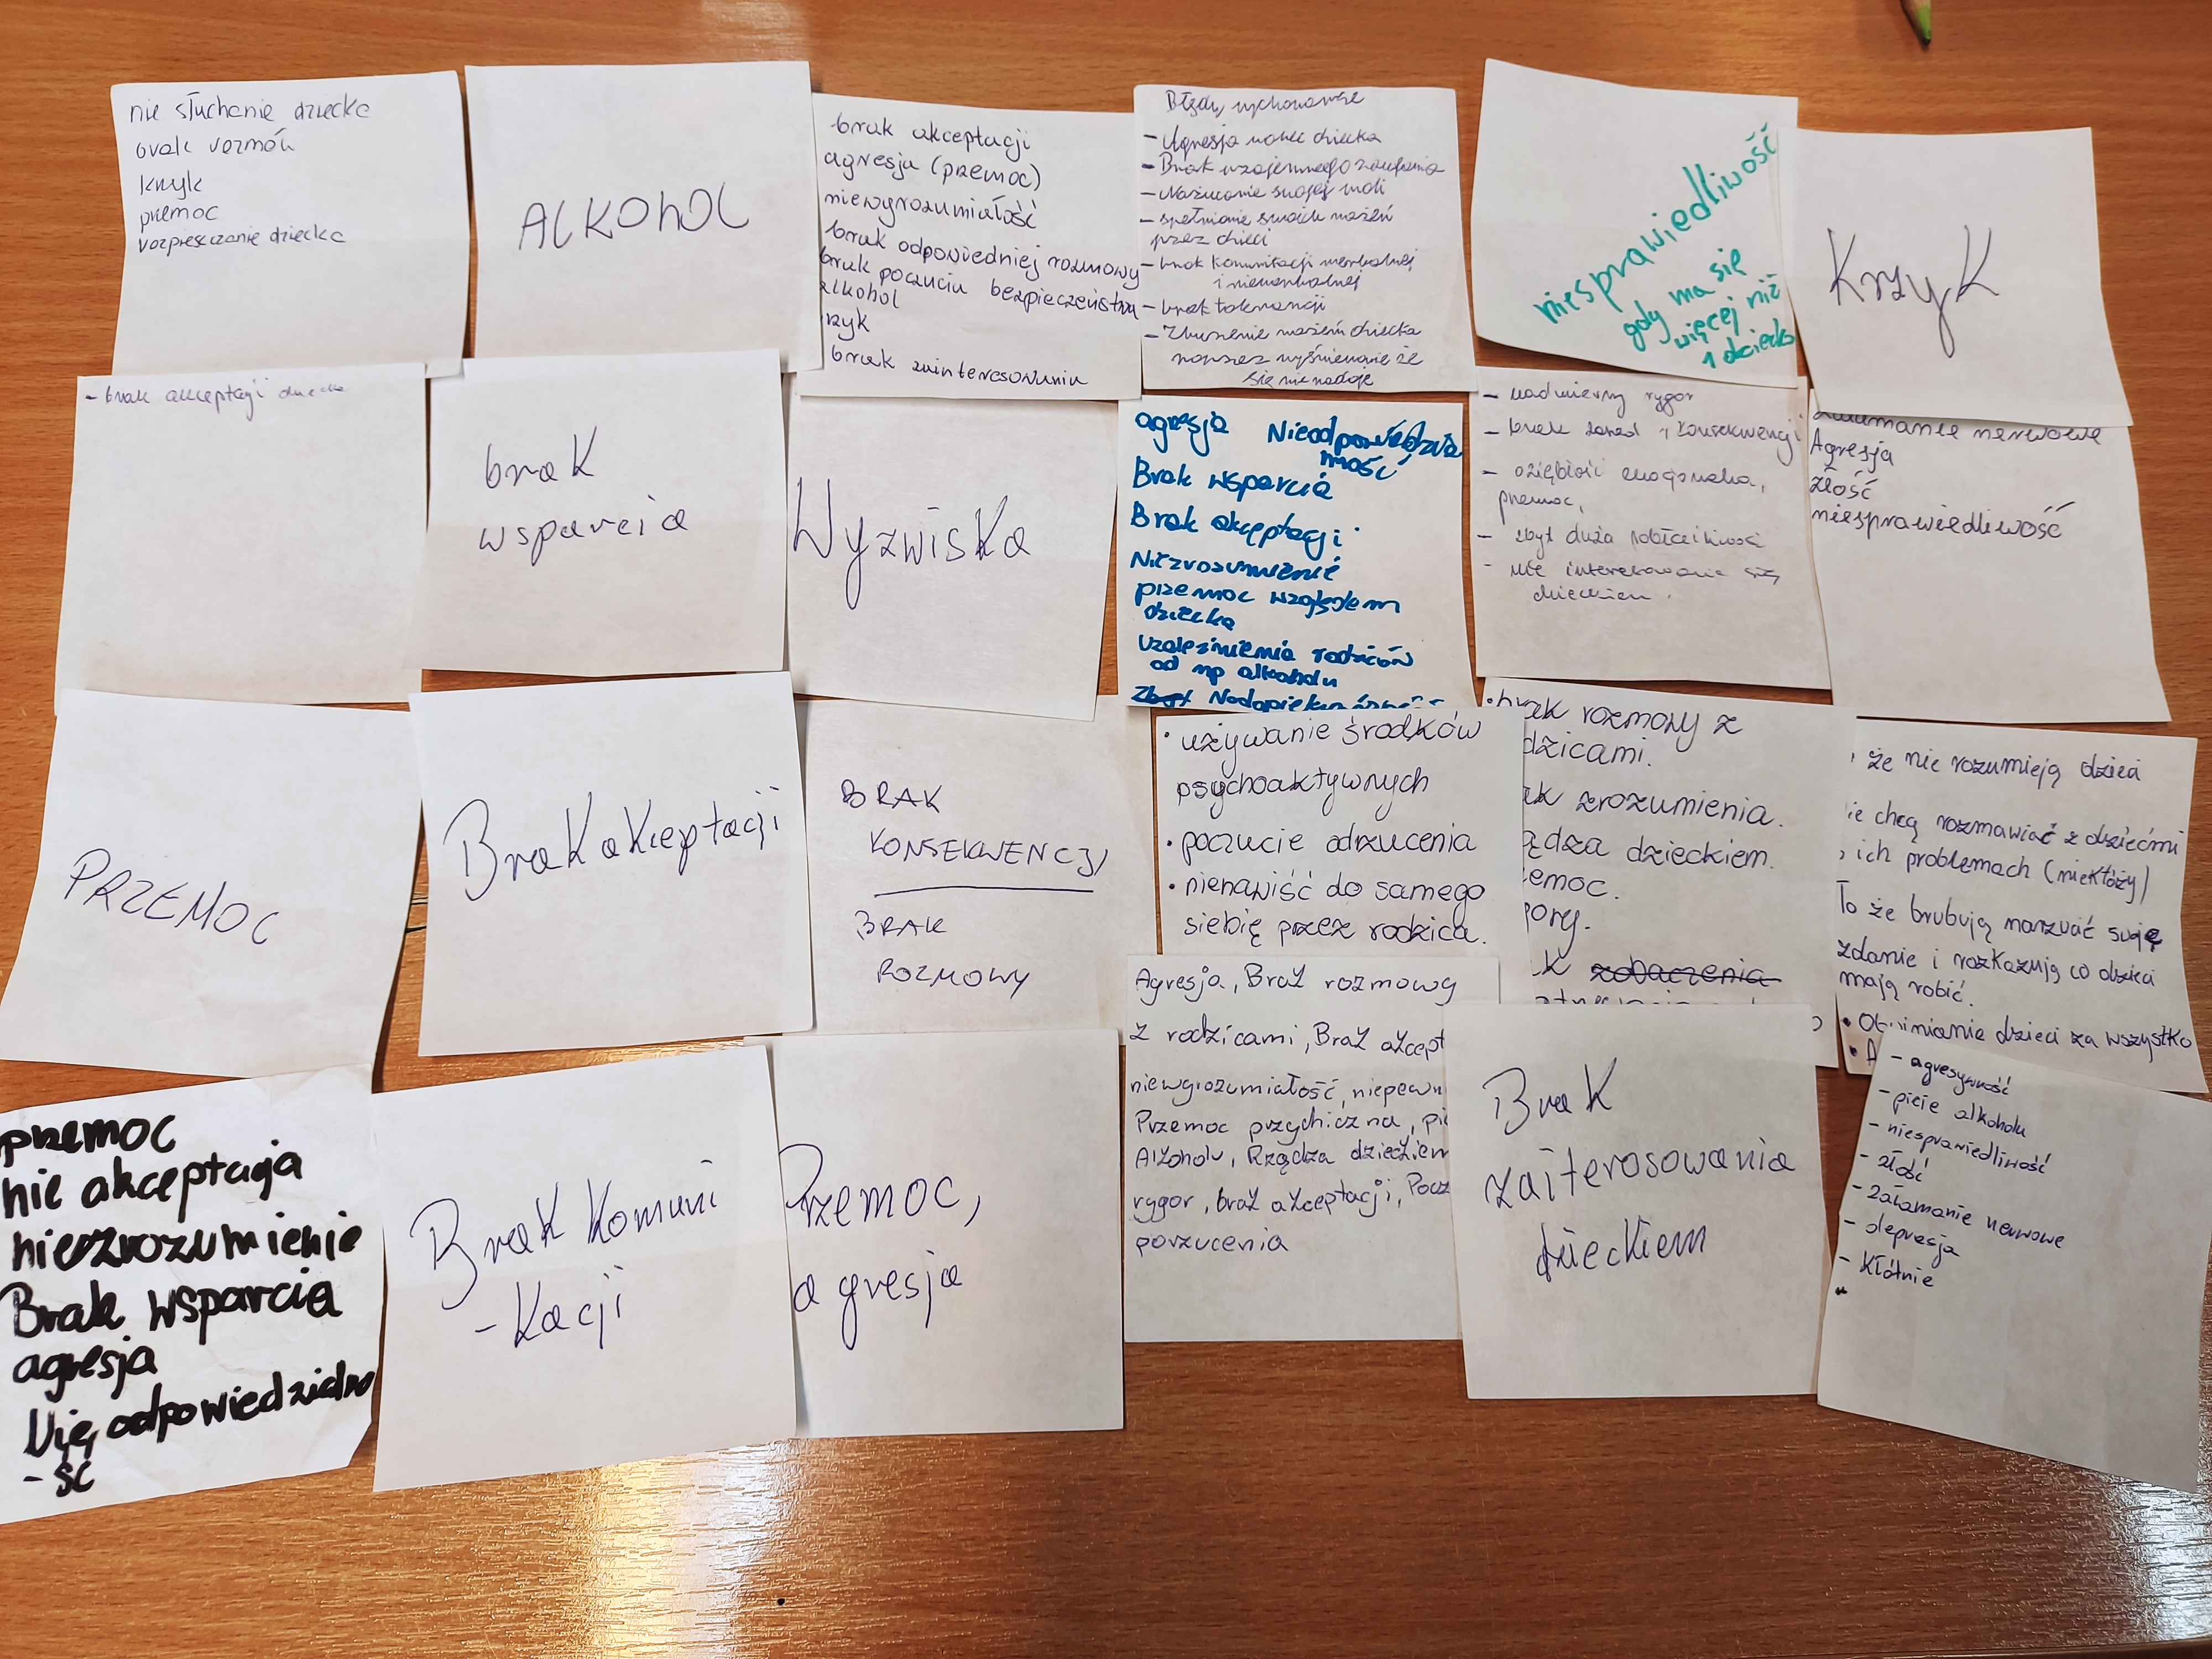 nie słuchanie dziecka
brak rozmów
krzyk
przemoc
rozpieszczanie dziecka
ALKOhOL
brak akceptacji
agresja (przemoc)
niewyrozumiałość
brak odpowiedniej rozmowy
brak poczuciu bezpieczeństwa
alkohol
rzyk
brak zainteresowania
Błędy wychowawcze
- Agresja wobec dziecka
- Brak wzajemnego zaufania
- Nażucanie swojej woli
- spełnianie swoich mażeń
przez dzieci
- brak komunikacji werbalnej
i niewerbalnej
- brak tolerancji
- Zburzenie mażeń dziecka
poprzez wyśmiewanie że
się nie nadaje
niesprawiedliwość
gdy ma się
więcej niż
1 dziecko
KrzyK
- brak akceptacji dziecka
braK
wsparcia
WyzwisKa
agresja Nieodpowiedzia
ność
Brak wsparcia
Brak akceptacji
Niezrozumienie
przemoc względem
dziecka
Uzależnienia rodziców
od np alkoholu
Zbyt Nadopiekuńczość
- nadmierny rygor
- brak zasad i konsekwencji
- oziębłość emocjonalna,
przemoc,
- zbyt duża pobłażliwość
- nie interesowanie się
dzieckiem.
załamanie nerwowe
Agresja
złość
niesprawiedliwość
PRZEMOC
BraK aKceptacji
BRAK
KONSEKWENCJI
BRAK
ROZMOWY
• używanie środków
psychoaktywnych
• poczucie odrzucenia
• nienawiść do samego
siebię przez rodzica.
• brak rozmowy z
dzicami.
ak zrozumienia.
ądza dzieckiem.
emoc.
gory.
k zobaczenia
że nie rozumieją dzieci
ie chcą rozmawiać z dziećmi
ich problemach (niektóży)
To że brubują narzucić swoje
zdanie i rozkazują co dzieci
mają robić.
• Obwinianie dzieci za wszystko
• A
przemoc
nie akceptacja
niezrozumienie
Brak wsparcia
agresja
Nię odpowiedzialno
- ść
BraK Komuni
- Kacji
Przemoc,
agresja
Agresja, Brak rozmowy
z rodzicami, Brak akcept
niewyrozumiałość, niepewn
Przemoc przychiczna, pic
Alkoholu, Rządza dzieckiem
rygor, brak akceptacji, Pocz
porzucenia
BraK
zaiterosowania
dziecKiem
- agresywność
- picie alkoholu
- niesprawiedliwość
- złość
- załamanie nerwowe
- depresja
- Kłótnie